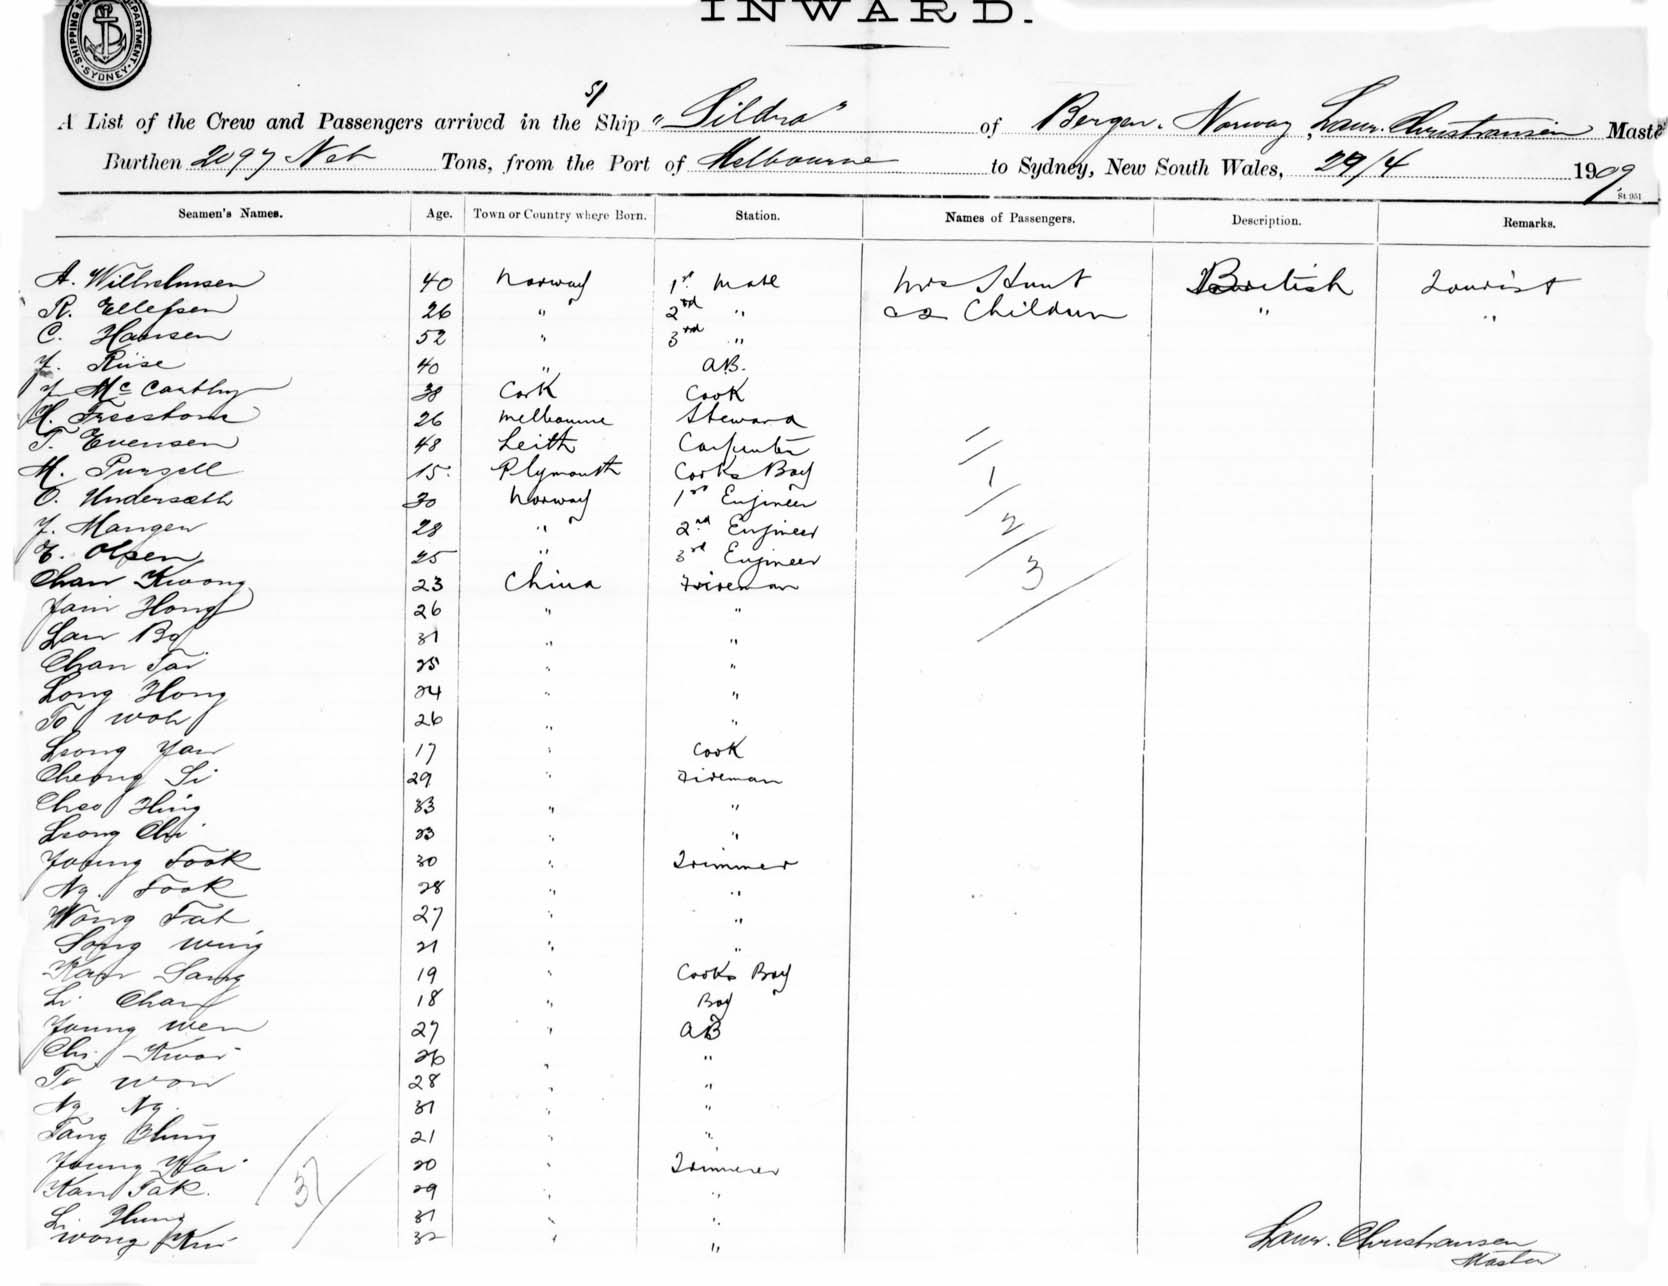 INWARD.
SHIPPING DEPARTMENT SYDNEY
A List of the Crew and Passengers arrived in the S/ Ship "Sildra" of Bergen. Norway, Laur. Christiansen Master
Burthen 2097 Net Tons, from the Port of Melbourne to Sydney, New South Wales, 29/4 1909
St 951
Seamen's Names. Age. Town or Country where Born. Station. Names of Passengers. Description. Remarks.
A. Wilhelmsen 40 Norway 1st Mate Mrs Hunt British Tourist
R. Ellefsen 26 " 2nd " 2 Children " "
C. Hansen 52 " 3rd "
Riise 40 " AB.
McCarthy 38 Cork Cook
H. Freestone 26 Melbourne Steward
T. Evensen 48 Leith Carpenter
M. Pursell 15 Plymouth Cooks Boy
O. Undersæth 30 Norway 1st Engineer
Mangen 28 " 2nd Engineer
E. Olsen 25 " 3rd Engineer
Chan Kwong 23 China Fireman
Hong 26 " "
Lau Bo 31 " "
Chan Tai 25 " "
Long Hong 24 " "
To Woh 26 " "
Leong Yau 17 " Cook
Cheong Si 29 " Fireman
Cheo Hing 33 " "
Leong Chi 23 " "
Young Fook 30 " Trimmer
Ng. Fook 28 " "
Wong Fat 27 " "
Song Wing 21 " "
Kan Sang 19 " Cooks Boy
Li Chan 18 " Boy
Young Wen 27 " AB
Chi Kwai 26 " "
To Won 28 " "
Ng Ng. 31 " "
Tang Chung 21 " "
Young Kai 20 " Trimmer
Kan Tak. 29 " "
Li Hung 31 " "
Wong Kui 32 " "
11
1
2
3
37
Laur. Christiansen
Master